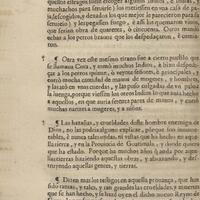 questo estragos suele escoger algunos Indios, è Indias, y
muchachos para seruirse: y los restantes en vna casa de pa
ja despojados, y dexados los que mejor le parecieron para su
seruicio, y les pega fuego, è assi los quemaron viuos, que
serian obra de quarenta, ò cincuenta. Otros mando
echar a los perros brauos que los despedaçaron, è comie
ron.
¶ Otra vez este mesmo tirano fue a cierto pueblo que
se llamaua Cota, y tomò muchos Indios, è hizo despeda
çar a los perros quinze, ò veynte señores, è principales, y
cortò mucha cantidad de manos de mugeres, y hombres,
y las atò en vnas cuerdas, y las puso colgadas de vn palo a
la luenga, porque viessen los otros Indios lo que auia hecho
a aquellos, en que auria setenta pares de manos, y cortò
muchas narizes a mugeres, y a niños.
¶ Las hazañas, y crueldades deste hombre enemigo de
Dios, no las podria alguno explicar, porque son innume
rables, è nunca tales oydas, ni vistas, que ha hecho en aque
lla tierra, y en la Prouincia de Guatimala, y donde quiera
que ha estado. Porque ha muchos años que anda por aque
llas tierras haziendo aquestas obras, y abrasando, y destru
yendo aquellas gentes, y tierras.
¶ Dizen mas los testigos en aquella prouança, que han
sido tantas, y tales, y tan grandes las crueldades, è muertes
que se han hecho, y se hazen oy en el dicho nueuo Reyno de